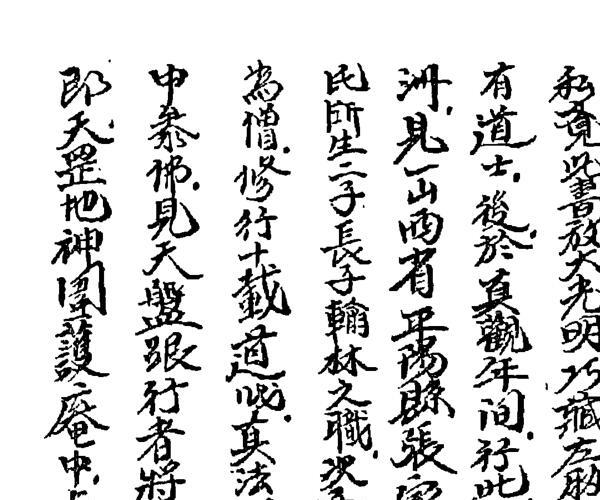 私覓此書放大光明巧藏左肋
有道士後於真觀年间行此
洲見一山西省平陽縣張家
氏所生二子長子翰林之職次
為僧修行十載道成真法
中叅佛見天盤銀行者將
即天罡地神圍護庵中